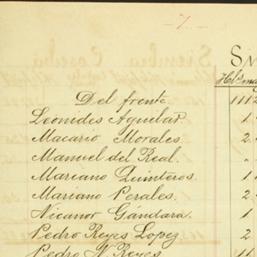 -7-
Sm
Hls. ma
Del frente 1112
Leonides Aguilar. 1
Macario Morales. 2
Manuel del Real. "
Mariano Quinteros. 1
Mariano Perales. 2
Nicanor Gandara. 1
Pedro Reyes Lopez 2
Pedro N. Reyes 11